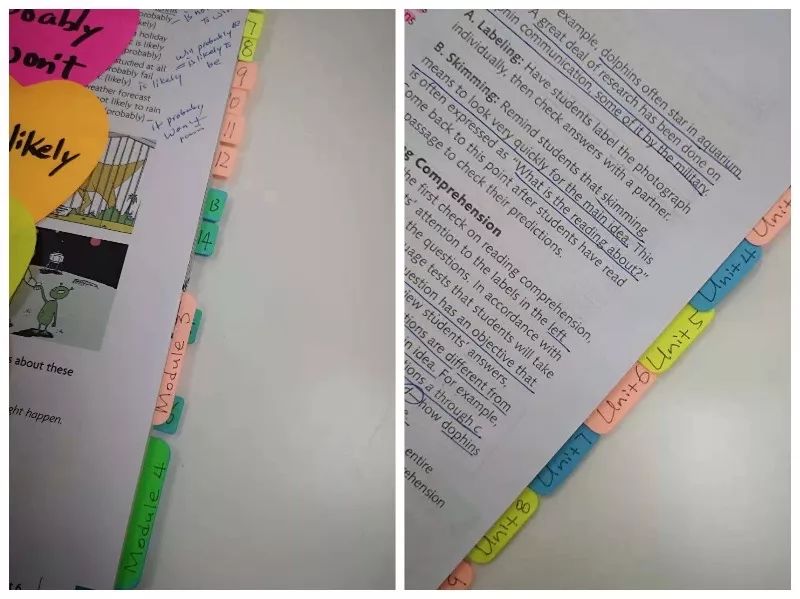 bably
on't
likely
holiday
is likely
probably)
studied at all
robably fail
(likely) is likely
weather forecast
not likely to rain
(probably)
will probably be
= is likely to
be
it probably
won't
7
8
9
0
11
12
13
14
Module 3
Module 4
s about these
ght happen.
example, dolphins often star in aquarium
A great deal of research has been done on
hin communication, some of it by the military.
A. Labeling: Have students label the photograph
individually, then check answers with a partner.
B. Skimming: Remind students that skimming
means to look very quickly for the main idea. This
is often expressed as "What is the reading about?"
Come back to this point after students have read
passage to check their predictions.
g Comprehension
the first check on reading comprehension,
ts' attention to the labels in the left
the questions. In accordance with
uage tests that students will take
uestion has an objective that
view students' answers,
tions are different from
n idea. For example,
ions a through c
how dophins
entire
rehension
Unit
Unit 4
Unit 5
Unit 6
Unit 7
Unit 8
9